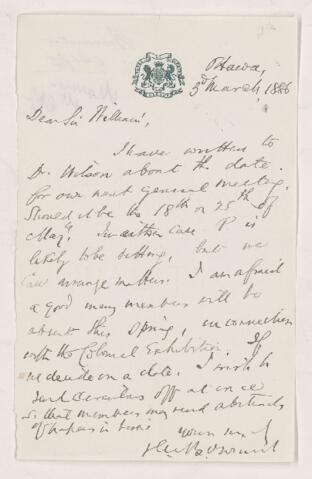 Ottawa,
3d March, 1886
Dear Sir William,
I have written to
Dr. Wilson about the date
for our next general meeting.
Should it be the 18th or 25th of
May? In either case P is
likely to be sitting, but we
can arrange matters. I am afraid
a good many members will be
absent this Spring, in connection
with the Colonial Exhibition. If
we decide on a date, I wish to
send circulars off at once
so that members may send abstracts
of papers in time
Yours